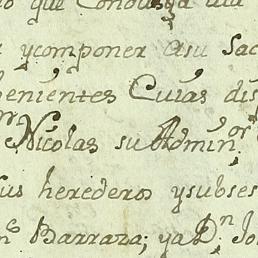 que Conduzga
ycomponer asu Sac
benientes Cuias dis
Nicolas su Admin.or
sus herederos ysubses
Barraza; ya D.n Jo